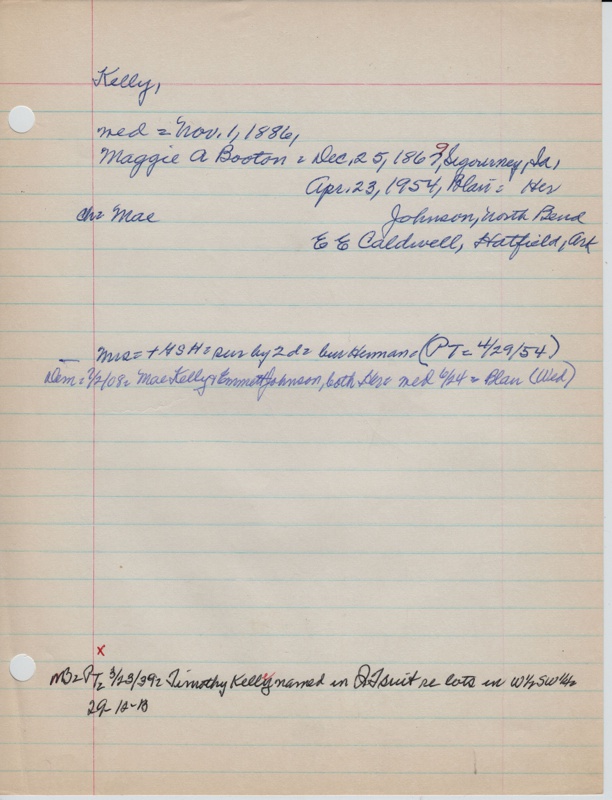 Kelly,
med = Nov. 1, 1886,
Maggie A Booton = Dec. 25, 1869, Sigourney, Ia,
Apr. 23, 1954, Blair = Her
ch = Mae Johnson, North Bend
E E Caldwell, Hatfield, Ark
Mrs = + HSH = sur by 2 d = bur Herman = (PT = 4/29/54)
Dem = 7/2/08 = Mae Kelly & Emmett Johnson, both Her = med 6/24 = Blair (Wed)
x
NB = PT = 3/23/39 = Timothy Kelly named in suit re lots in W½SW¼ =
29-12-